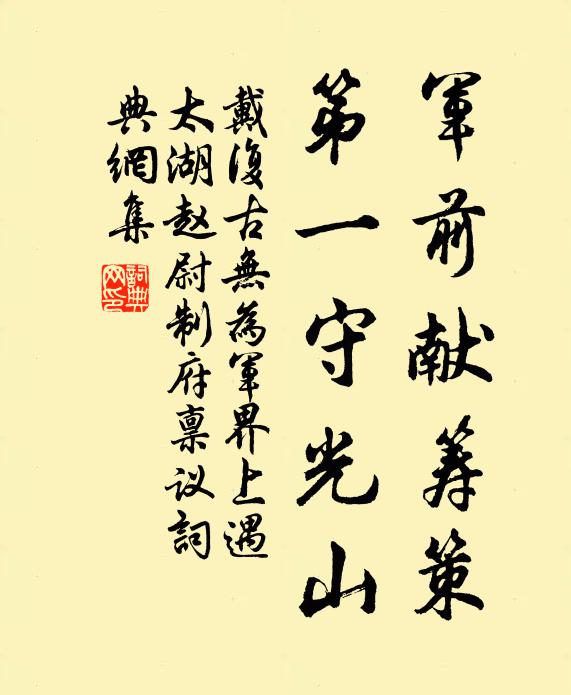 軍前献筹策
第一守光山
戴復古無為軍界上遇
太湖赵尉制府禀议詞
典網集
詞典网印